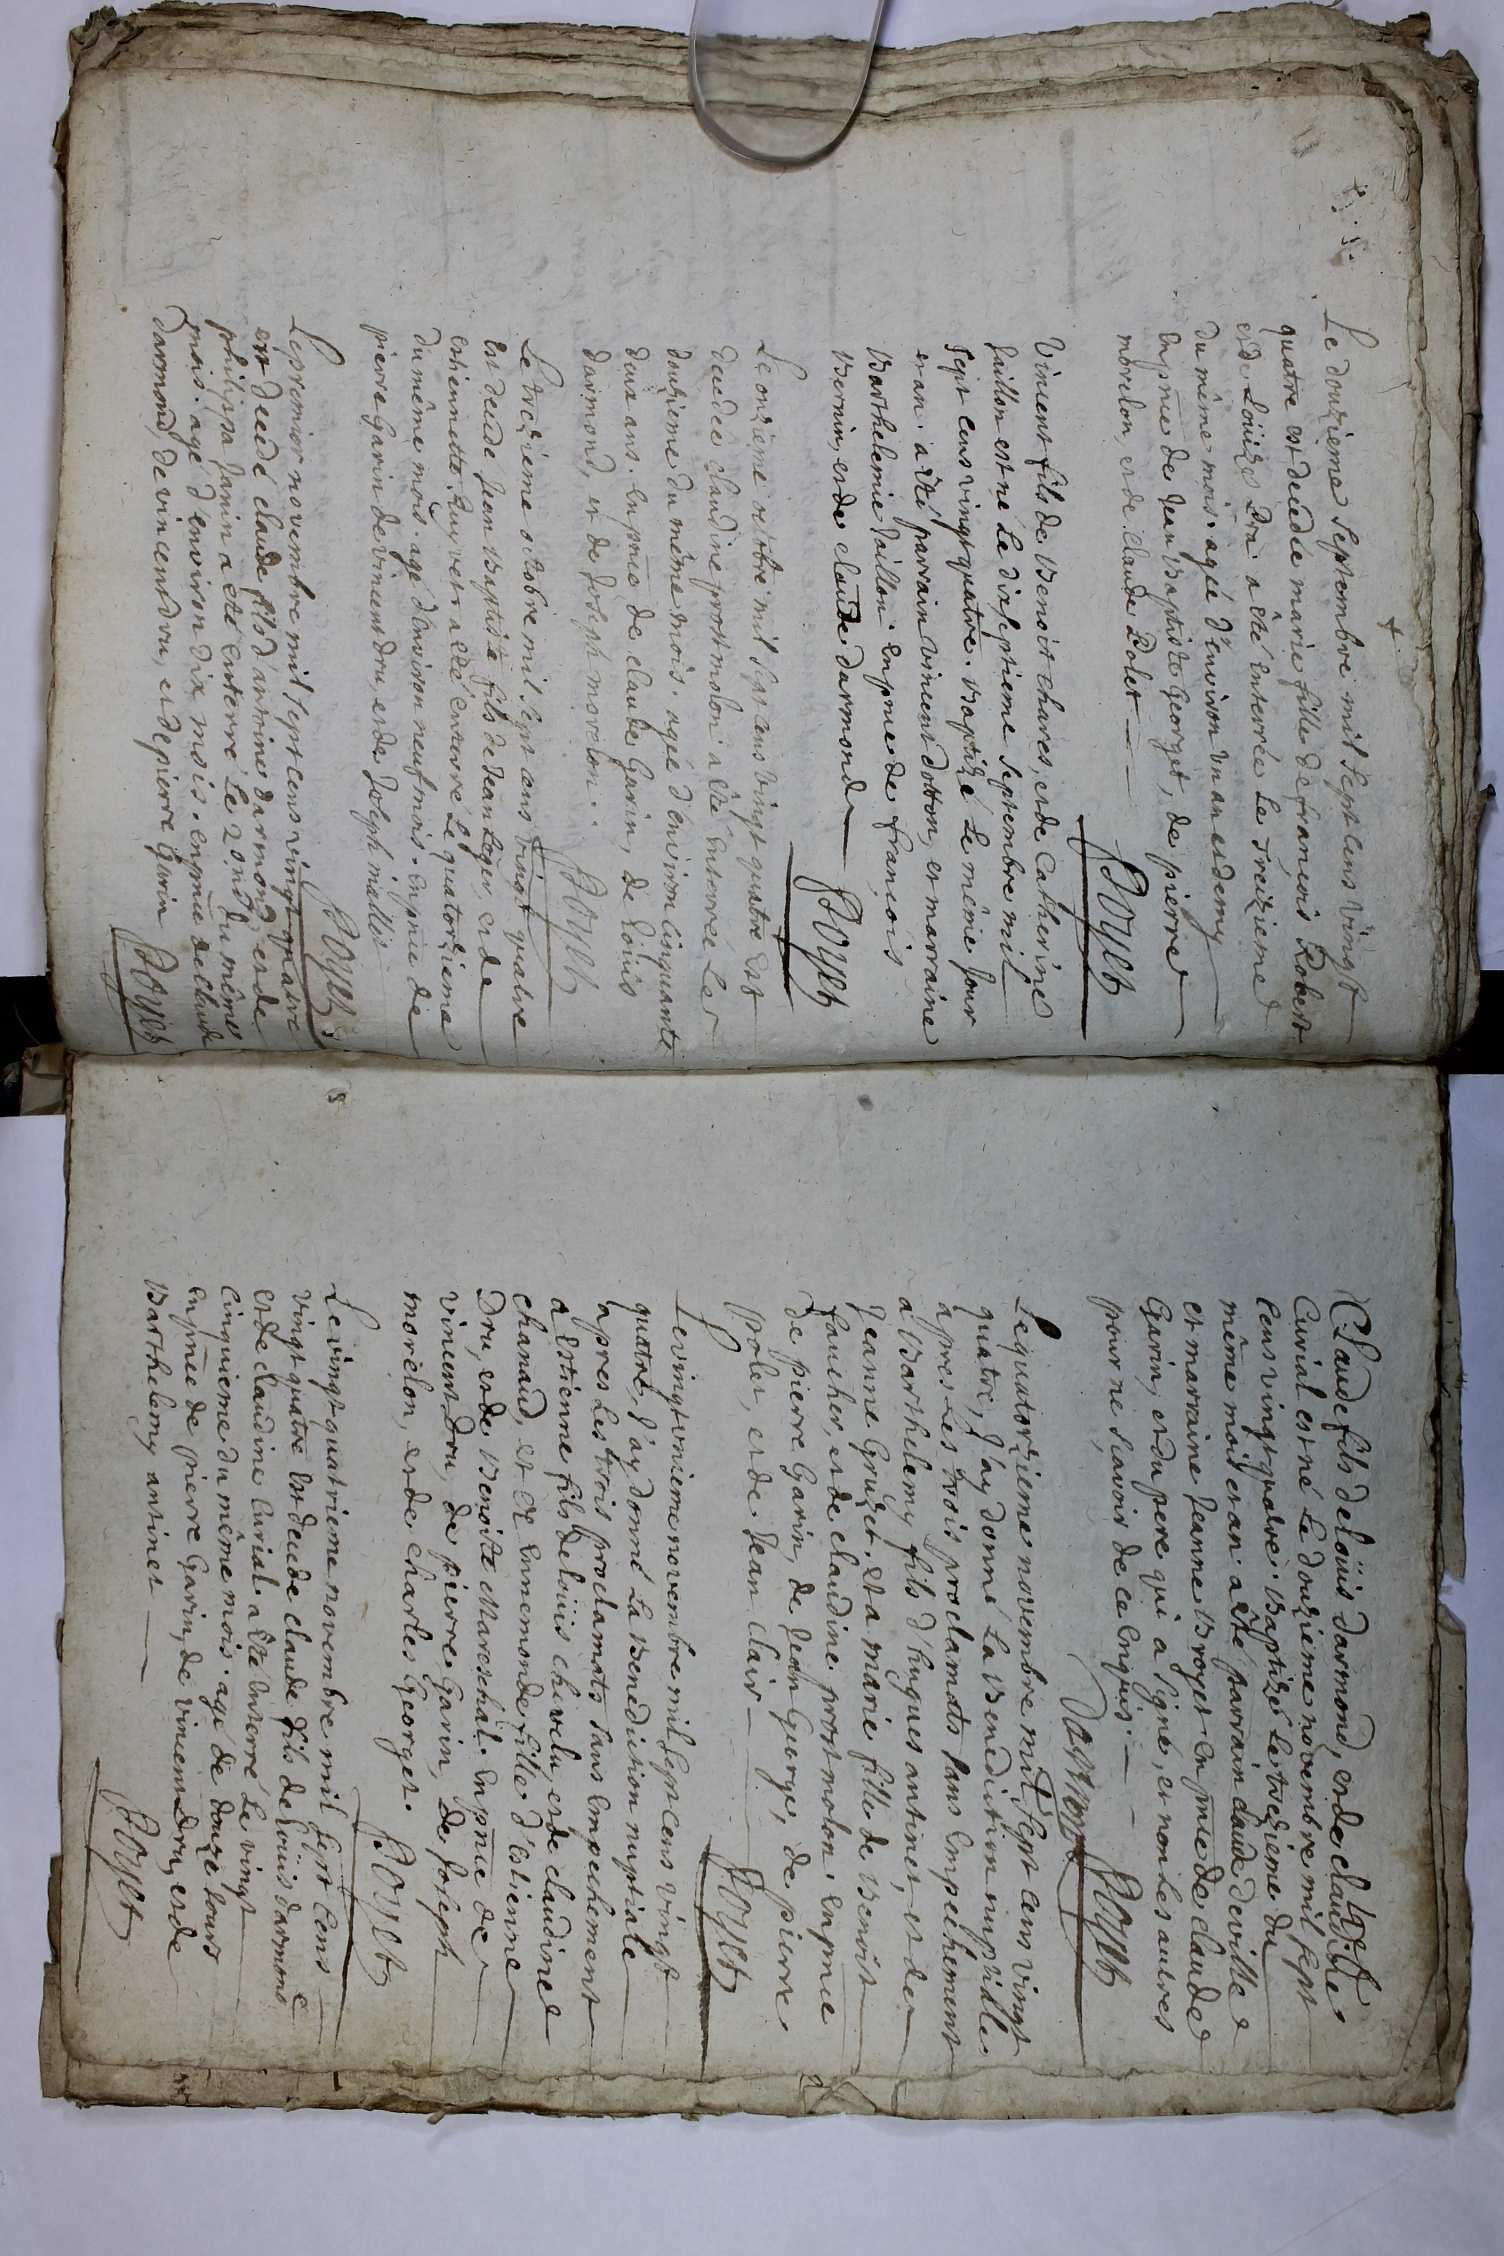 Le douzieme septembre mil sept cens vingt
quatre est decedée marie fille de francois Robert
et de Loüize Dra. a êté enterrée Le treizieme
du même mois. agée d'environ un an et demy
en pnce de Jean Baptiste Georget, de pierre
morelon, et de Claude Polet
Poyet
Vincent fils de Benoit chares, et de Catherine
faillon est né Le dixseptieme septembre mil
sept cens vingt quatre. Baptizé Le même jour
et an. a êté parrain vincent dotton, et marraine
Barthelemie faillon. en pnce de francois
Bernin, et de claude darmond
Poyet
Le onzieme octobre mil sept cens vingt quatre Est
decedée claudine prost molon. a êté enterrée Le
douzieme du même mois. agée d'environ cinquante
deux ans. en pnce de claude Garin, de Loüis
darmond, et de Joseph morelon.
Poyet
Le treizieme octobre mil sept cens vingt quatre
est decedé jean Baptiste fils de Jean Leger, et de
estiennette a êté enterré Le quatorzieme
du même mois. agé d'environ neuf mois. en pnce de
pierre Garin de vincent dru, et de Joseph mallet
Poyet
Le premier novembre mil sept cens vingt quatre
est decedé claude fils d'antoine darmond, et de
philippa Janin a êté enterré Le 2ond du même
mois. agé d'environ dix mois. en pnce de claude
darmond, de vincent dru, et de pierre Garin
Poyet
Claude fils de Loüis darmond, et de claudine
Curial est né Le douzieme novembre mil sept
cens vingt quatre. Baptizé Le treizieme du
même mois et an. a êté parrain claude deville
et marraine Jeanne Broyet en pnce de claude
Garin, et du pere qui a signé, et non Les autres
pour ne scavoir de ce enquis.
Darmond Poyet
Le quatorzieme novembre mil sept cens vingt
quatre, J'ay donné La Benediction nuptiale
apres Les trois proclamats sans empechement
a Barthelemy fils d'hugues antinet, et de
Jeanne Gruzet. et a marie fille de Benoit
faucher, et de claudine prost molon. en pnce
de pierre Garin, de Jean George, de pierre
polet, et de Jean clair
Poyet
Le vingt unieme novembre mil sept cens vingt
quatre, J'ay donné La Benediction nuptiale
apres Les trois proclamats sans empechement
a estienne fils de Loüis chevelu, et de claudine
chanaud, et a ennemonde fille d'estienne
Dru, et de Benoite Mareschal. en pnce de
vincent Dru, de pierre Garin, de Joseph
morelon, et de charles Georget.
Poyet
Le vingt quatrieme novembre mil sept cens
vingt quatre est decedé claude fils de Loüis darmond
et de claudine Curial. a êté enterré Le vingt
cinquieme du même mois. agé de douze Jours
en pnce de pierre Garin, de vincent dru, et de
Barthelemy antinet
Poyet